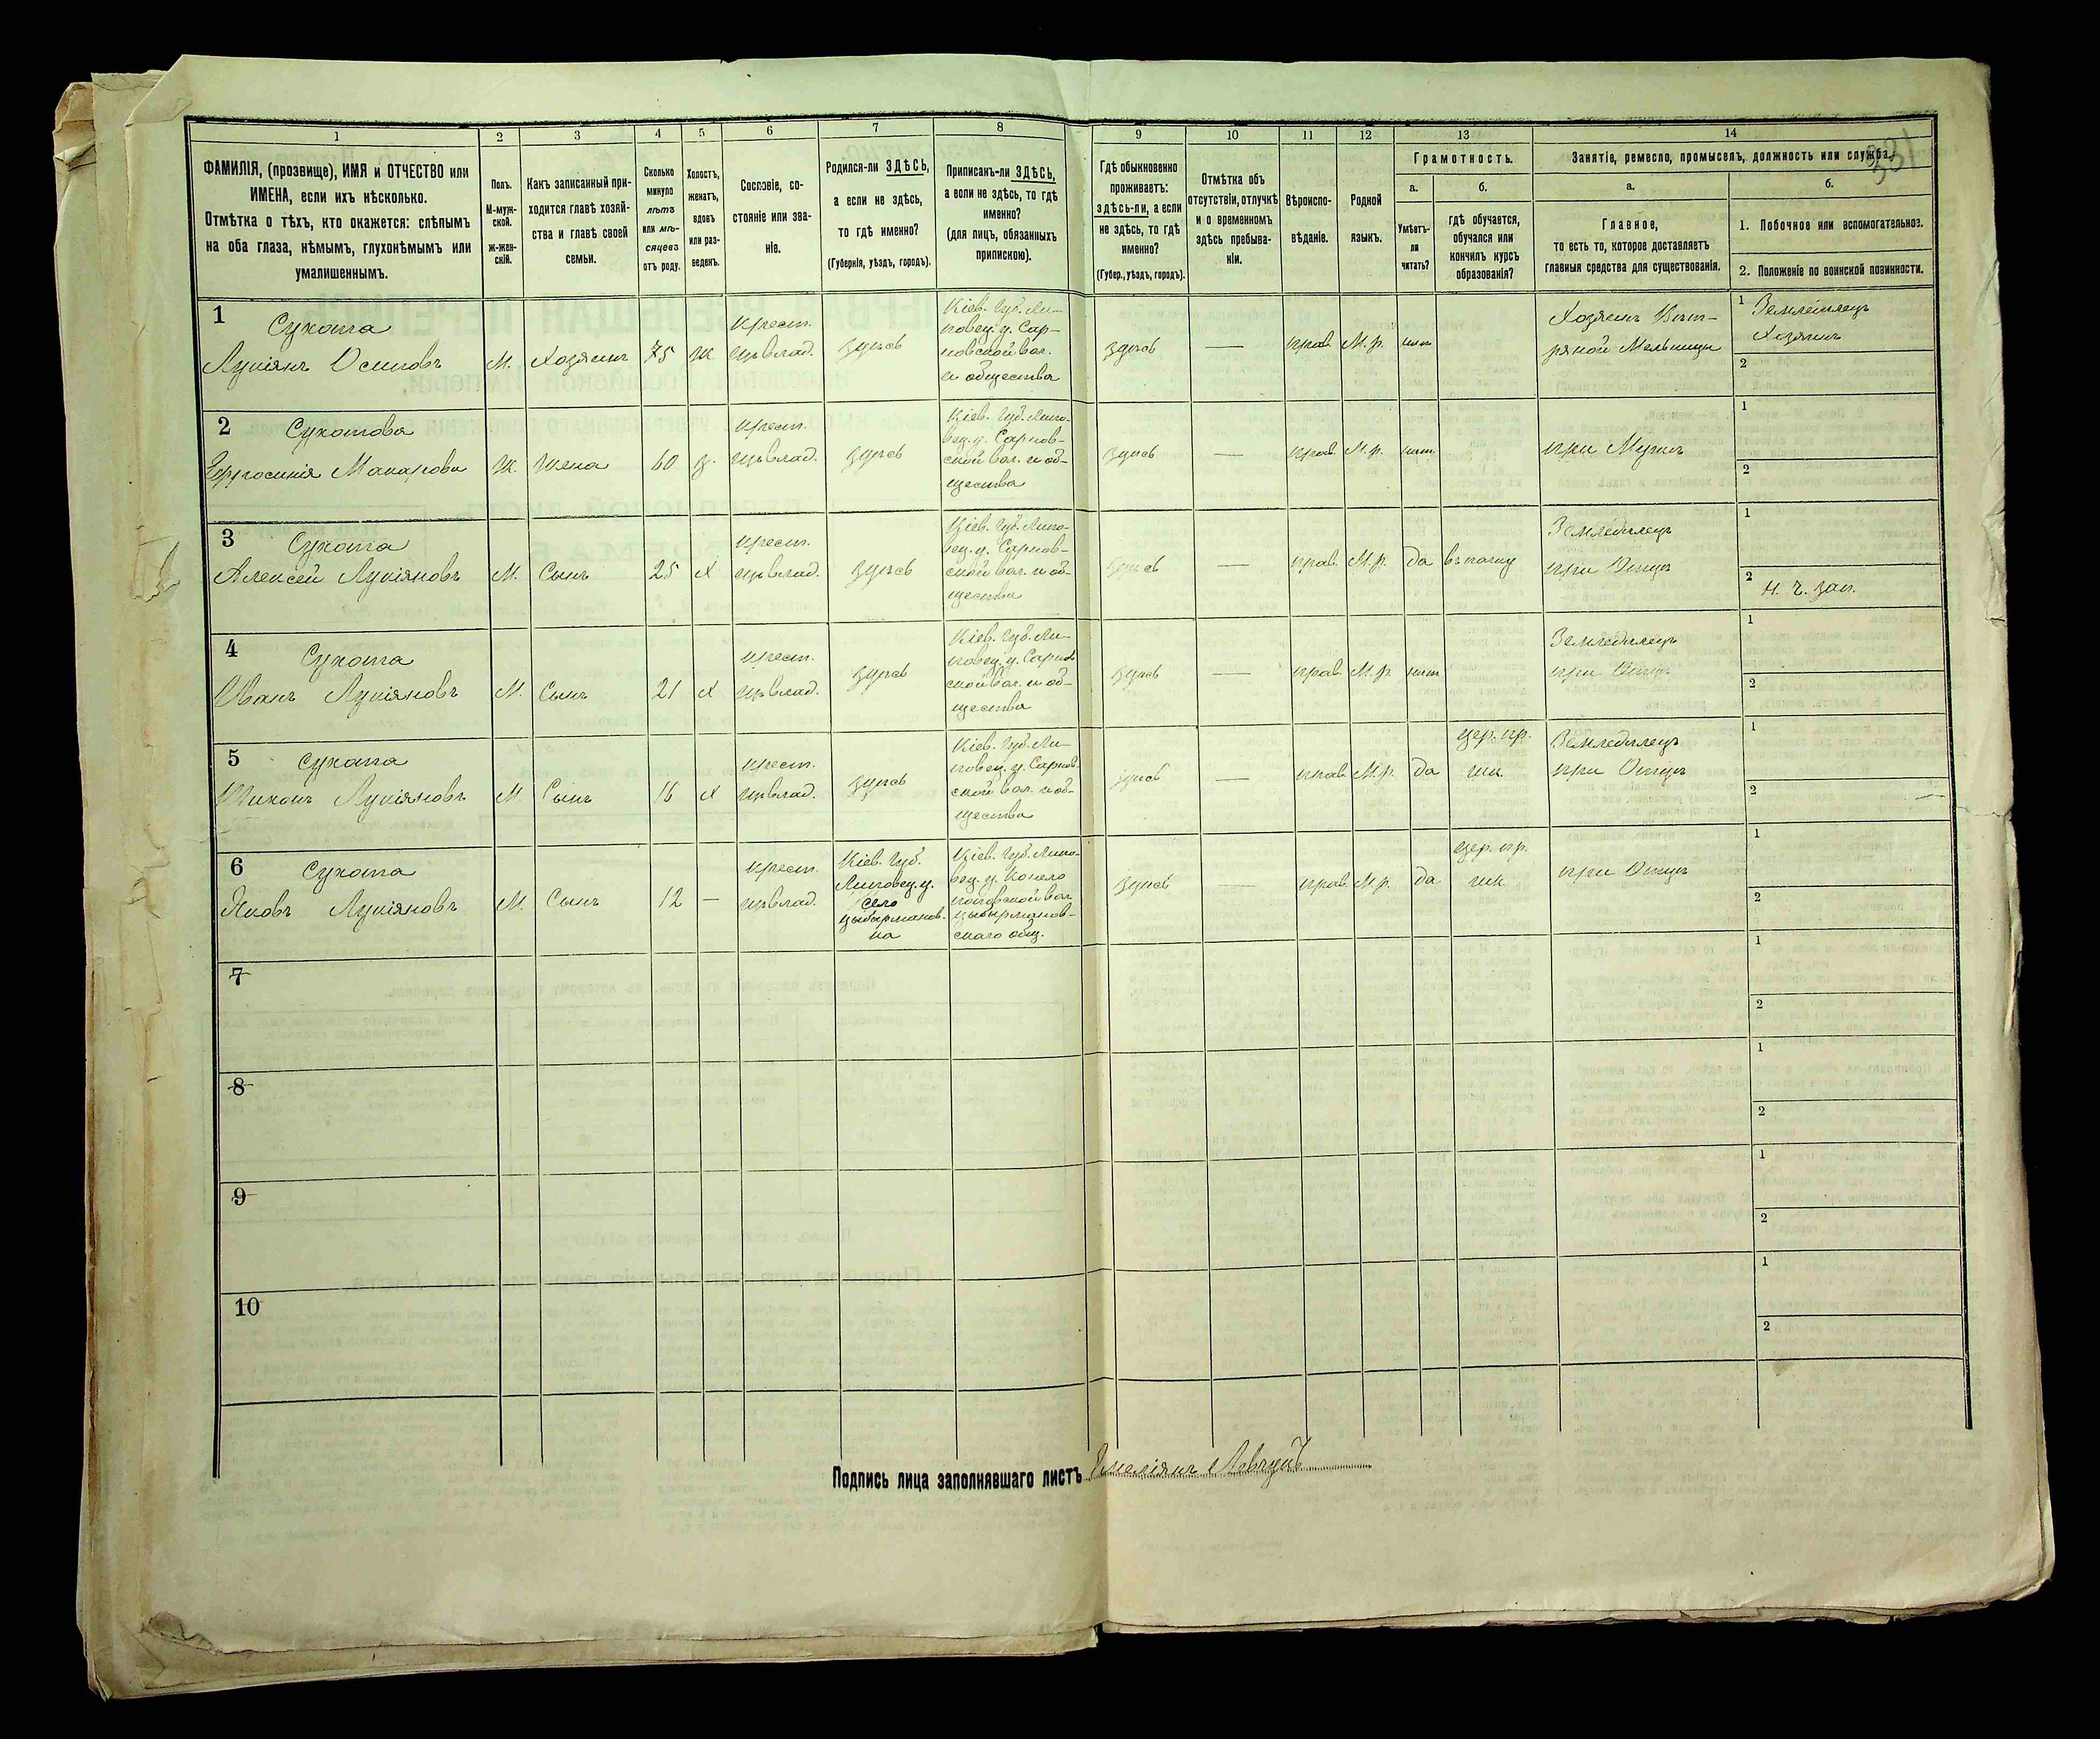 1
2
3
4
5
6
7
8
9
10
11
12
13
14
331
ФАМИЛІЯ, (прозвище), ИМЯ и ОТЧЕСТВО или
ИМЕНА, если ихъ нѣсколько.
Отмѣтка о тѣхъ, кто окажется: слѣпымъ
на оба глаза, нѣмымъ, глухонѣмымъ или
умалишеннымъ.
Полъ.
М-муж-
ской.
ж-жен-
скій.
Какъ записанный при-
ходится главѣ хозяй-
ства и главѣ своей
семьи.
Сколько
минуло
лѣтъ
или мѣ-
сяцевъ
отъ роду.
Холостъ,
женатъ,
вдовъ
или раз-
веденъ.
Сословіе, со-
стояніе или зва-
ніе.
Родился-ли ЗДѢСЬ,
а если не здѣсь,
то гдѣ именно?
(Губернія, уѣздъ, городъ).
Приписанъ-ли ЗДѢСЬ,
а если не здѣсь, то гдѣ
именно?
(для лицъ, обязанныхъ
припискою).
Гдѣ обыкновенно
проживаетъ:
здѣсь-ли, а если
не здѣсь, то гдѣ
именно?
(Губер., уѣздъ, городъ).
Отмѣтка объ
отсутствіи, отлучкѣ
и о временномъ
здѣсь пребыва-
ніи.
Вѣроиспо-
вѣданіе.
Родной
языкъ.
Грамотность.
а.
Умѣетъ-
ли
читать?
б.
гдѣ обучается,
обучался или
кончилъ курсъ
образованія?
Занятіе, ремесло, промыселъ, должность или служба.
а.
Главное,
то есть то, которое доставляетъ
главныя средства для существованія.
б.
1. Побочное или вспомогательное.
2. Положеніе по воинской повинности.
1
Сухота
Лукіянъ Осиповъ
М.
Хозяинъ
75
ж
крест.
здѣсь
Кіев. Губ. Ли-
повец. у. Сар-
новской вол.
и общества
здѣсь
—
прав.
М. р.
нѣтъ
Хозяинъ Вѣт-
ряной Мельницы
1 Земледѣлецъ
Хозяинъ
2
2
Сухотова
Макарова
Ж.
жена
60
з.
крест.
здѣсь
Кіев. Губ. Липо-
вец. у. Сарнов-
ской вол. и об-
щества
здѣсь
—
прав.
М. р.
нѣтъ
при Мужѣ
1
2
3
Сухота
Алексей Лукіяновъ
М.
Сынъ
25
х
крест.
здѣсь
Кіев. Губ. Липо-
вец. у. Сарнов-
ской вол. и об-
щества
здѣсь
—
прав.
М. р.
да
въ полку
Земледѣлецъ
при Отцѣ
1
2 Н. ч. зап.
4
Сухота
Иванъ Лукіяновъ
М.
Сынъ
21
х
крест.
здѣсь
Кіев. Губ. Ли-
повец. у. Сарнов
ской вол. и об-
щества
здѣсь
—
прав.
М. р.
нѣтъ
Земледѣлецъ
при Отцѣ
1
2
5
Сухота
Лукіяновъ
М.
Сынъ
16
х
крест.
здѣсь
Кіев. Губ. Ли-
повец. у. Сарнов
ской вол. и об-
щества
здѣсь
—
прав.
М. р.
да
цер. пр.
шк.
Земледѣлецъ
при Отцѣ
1
2
6
Сухота
Яковъ Лукіяновъ
М.
Сынъ
12
—
крест.
Кіев. Губ.
Липовец. у.
село
Цыбермановка
Кіев. Губ. Липо-
вец. у.
скаго общ.
здѣсь
—
прав.
М. р.
да
цер. пр.
шк.
при Отцѣ
1
2
7
1
2
8
1
2
9
1
2
10
1
2
Подпись лица заполнявшаго листъ Емеліянъ